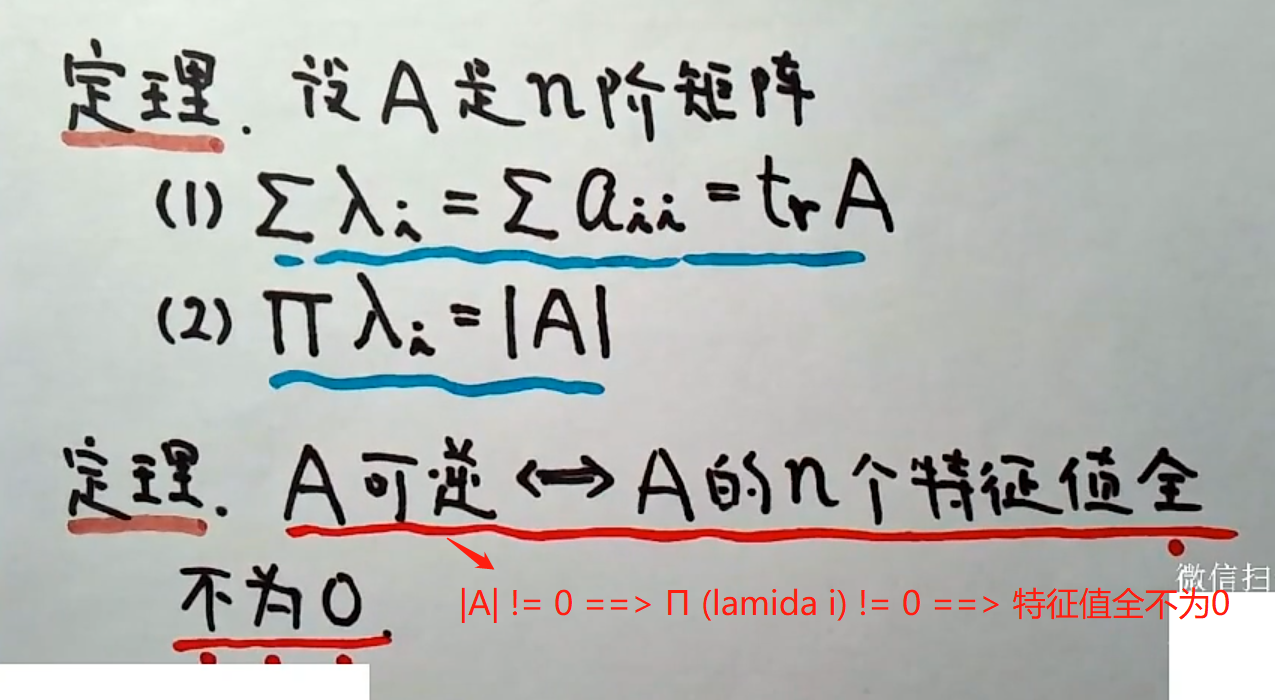 定理. 设A是n阶矩阵
(1) Σλi = Σaii = trA
(2) Πλi = |A|
定理. A可逆 ⟺ A的n个特征值全
不为0.
|A| != 0 ==> Π (lamida i) != 0 ==> 特征值全不为0
微信扫